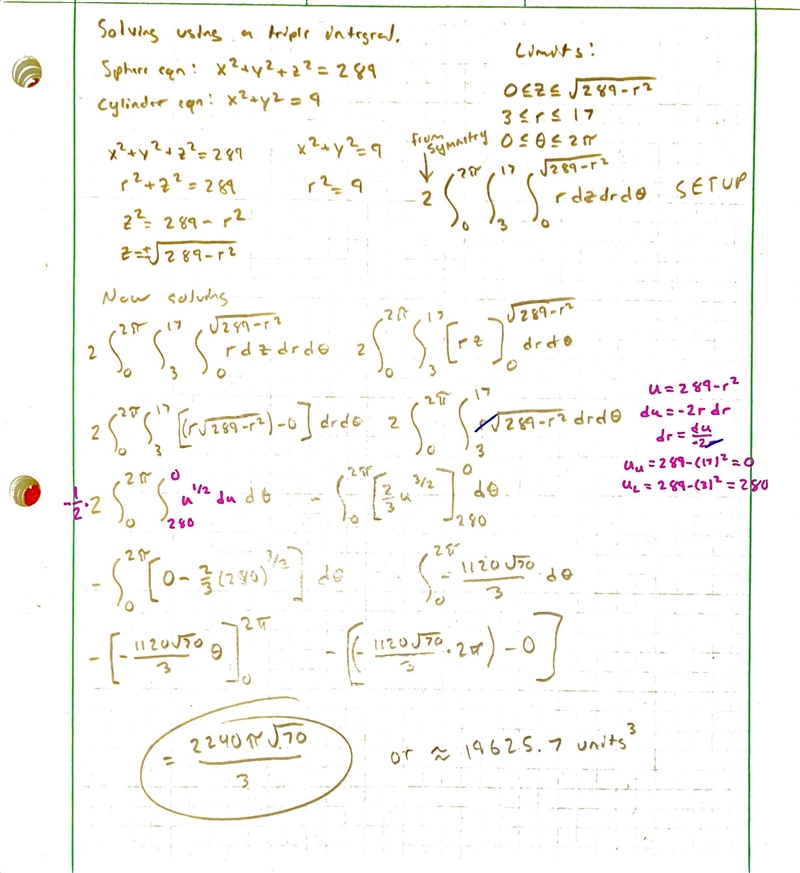 Solving using a triple integral.
Sphere eqn: x²+y²+z²=289
Cylinder eqn: x²+y²=9
Limits:
0≤z≤√(289-r²)
3≤r≤17
0≤θ≤2π
x²+y²+z²=289
r²+z²=289
z²=289-r²
z=±√(289-r²)
x²+y²=9
r²=9
from symmetry
2∫₀^2π ∫₃^17 ∫₀^√(289-r²) r dz dr dθ SETUP
Now solving
2∫₀^2π ∫₃^17 ∫₀^√(289-r²) r dz dr dθ 2∫₀^2π ∫₃^17 [rz]₀^√(289-r²) dr dθ
2∫₀^2π ∫₃^17 [(r√(289-r²))-0] dr dθ 2∫₀^2π ∫₃^17 r√(289-r²) dr dθ
u=289-r²
du=-2r dr
dr=du/-2r
u_u=289-(17)²=0
u_L=289-(3)²=280
-1/2·2∫₀^2π ∫₂₈₀^0 u^1/2 du dθ -∫₀^2π [2/3 u^3/2]₂₈₀^0 dθ
-∫₀^2π [0-2/3(280)^3/2] dθ -∫₀^2π -1120√70/3 dθ
-[-1120√70/3 θ]₀^2π -[(-1120√70/3·2π)-0]
=2240π√70/3 or ≈ 19625.7 units³